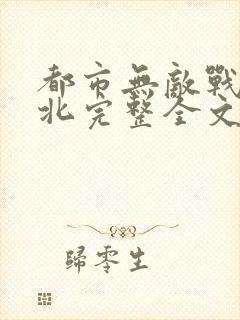 都市無敵戰
北完整全文
歸零生